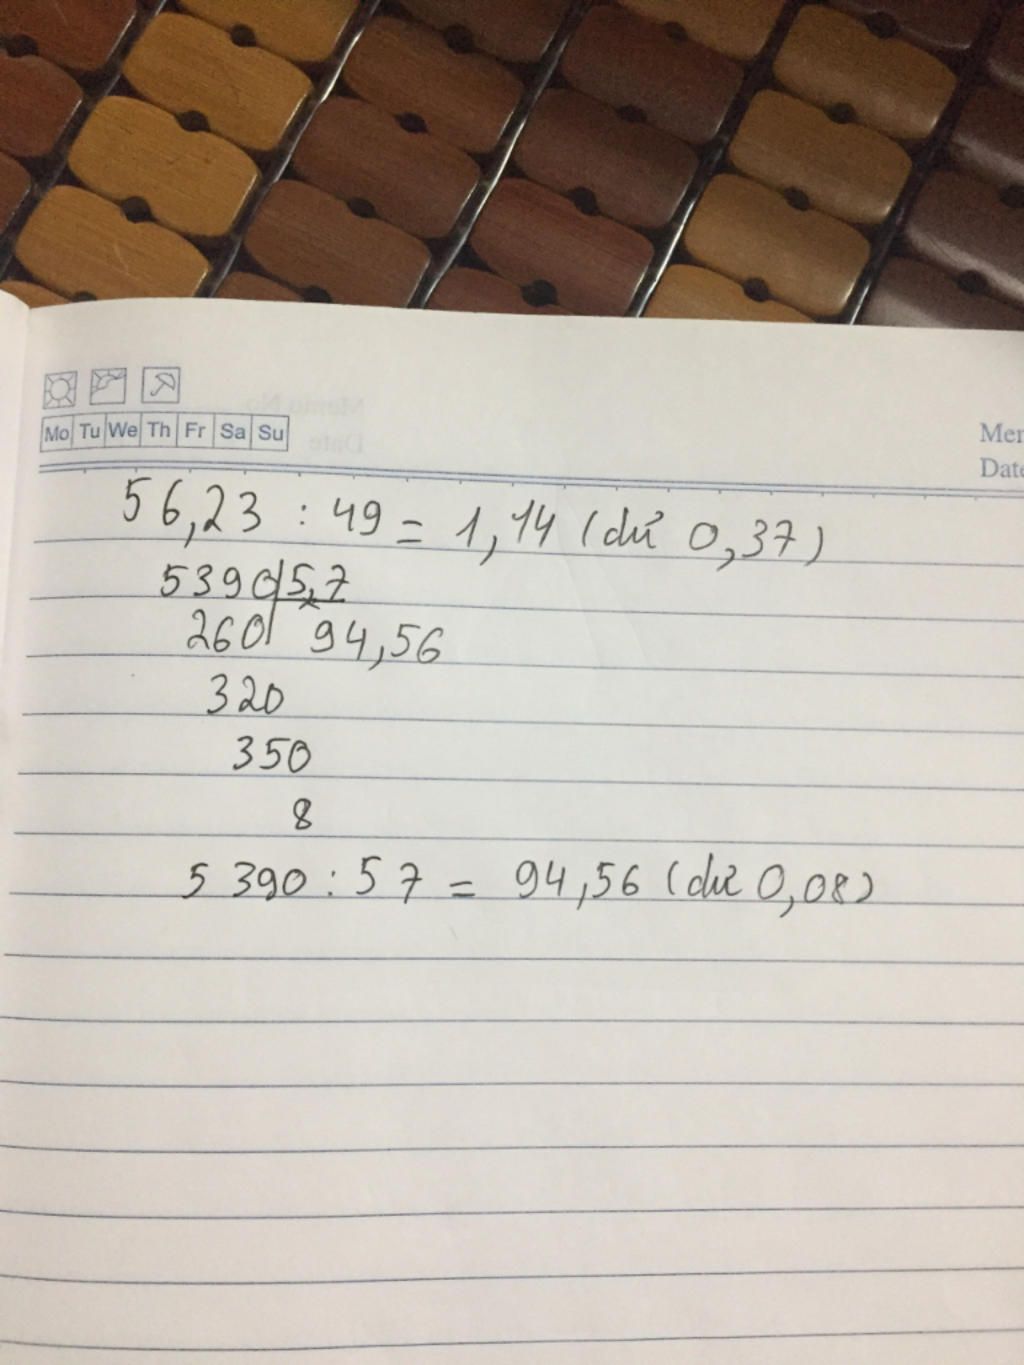 Mo Tu We Th Fr Sa Su
Mer
Date
56,23 : 49 = 1,14 (dư 0,37)
5390 5,7
260 94,56
320
350
8
5390 : 57 = 94,56 (dư 0,08)